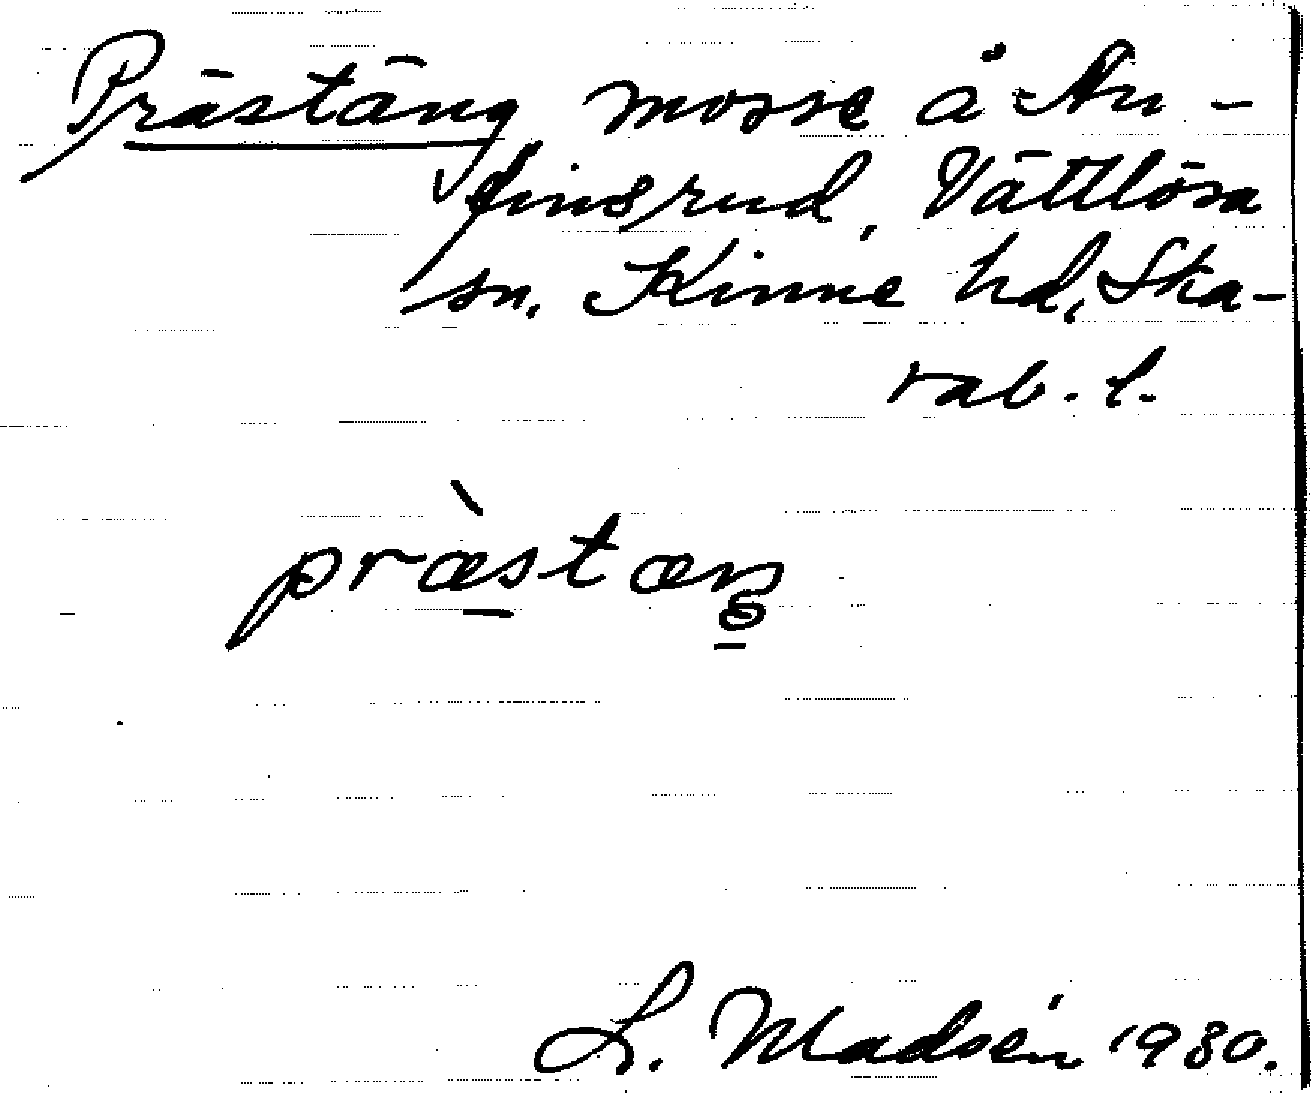 Prästäng mosse å An-
finsrud, Vättlösa
sn. Kinne hd, Ska-
rab. l.
præ̀stæng
L. Madsén 1930.